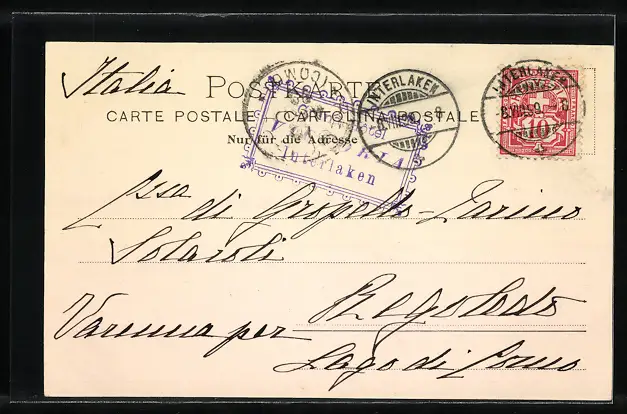 Italia
POSTKARTE
CARTE POSTALE - CARTOLINA POSTALE
Nur für die Adresse
VICTORIA
Interlaken
INTERLAKEN
INTERLAKEN
10
di Gropello-Tarino
Solaroli
Varenna per Regoledo
Lago di Como